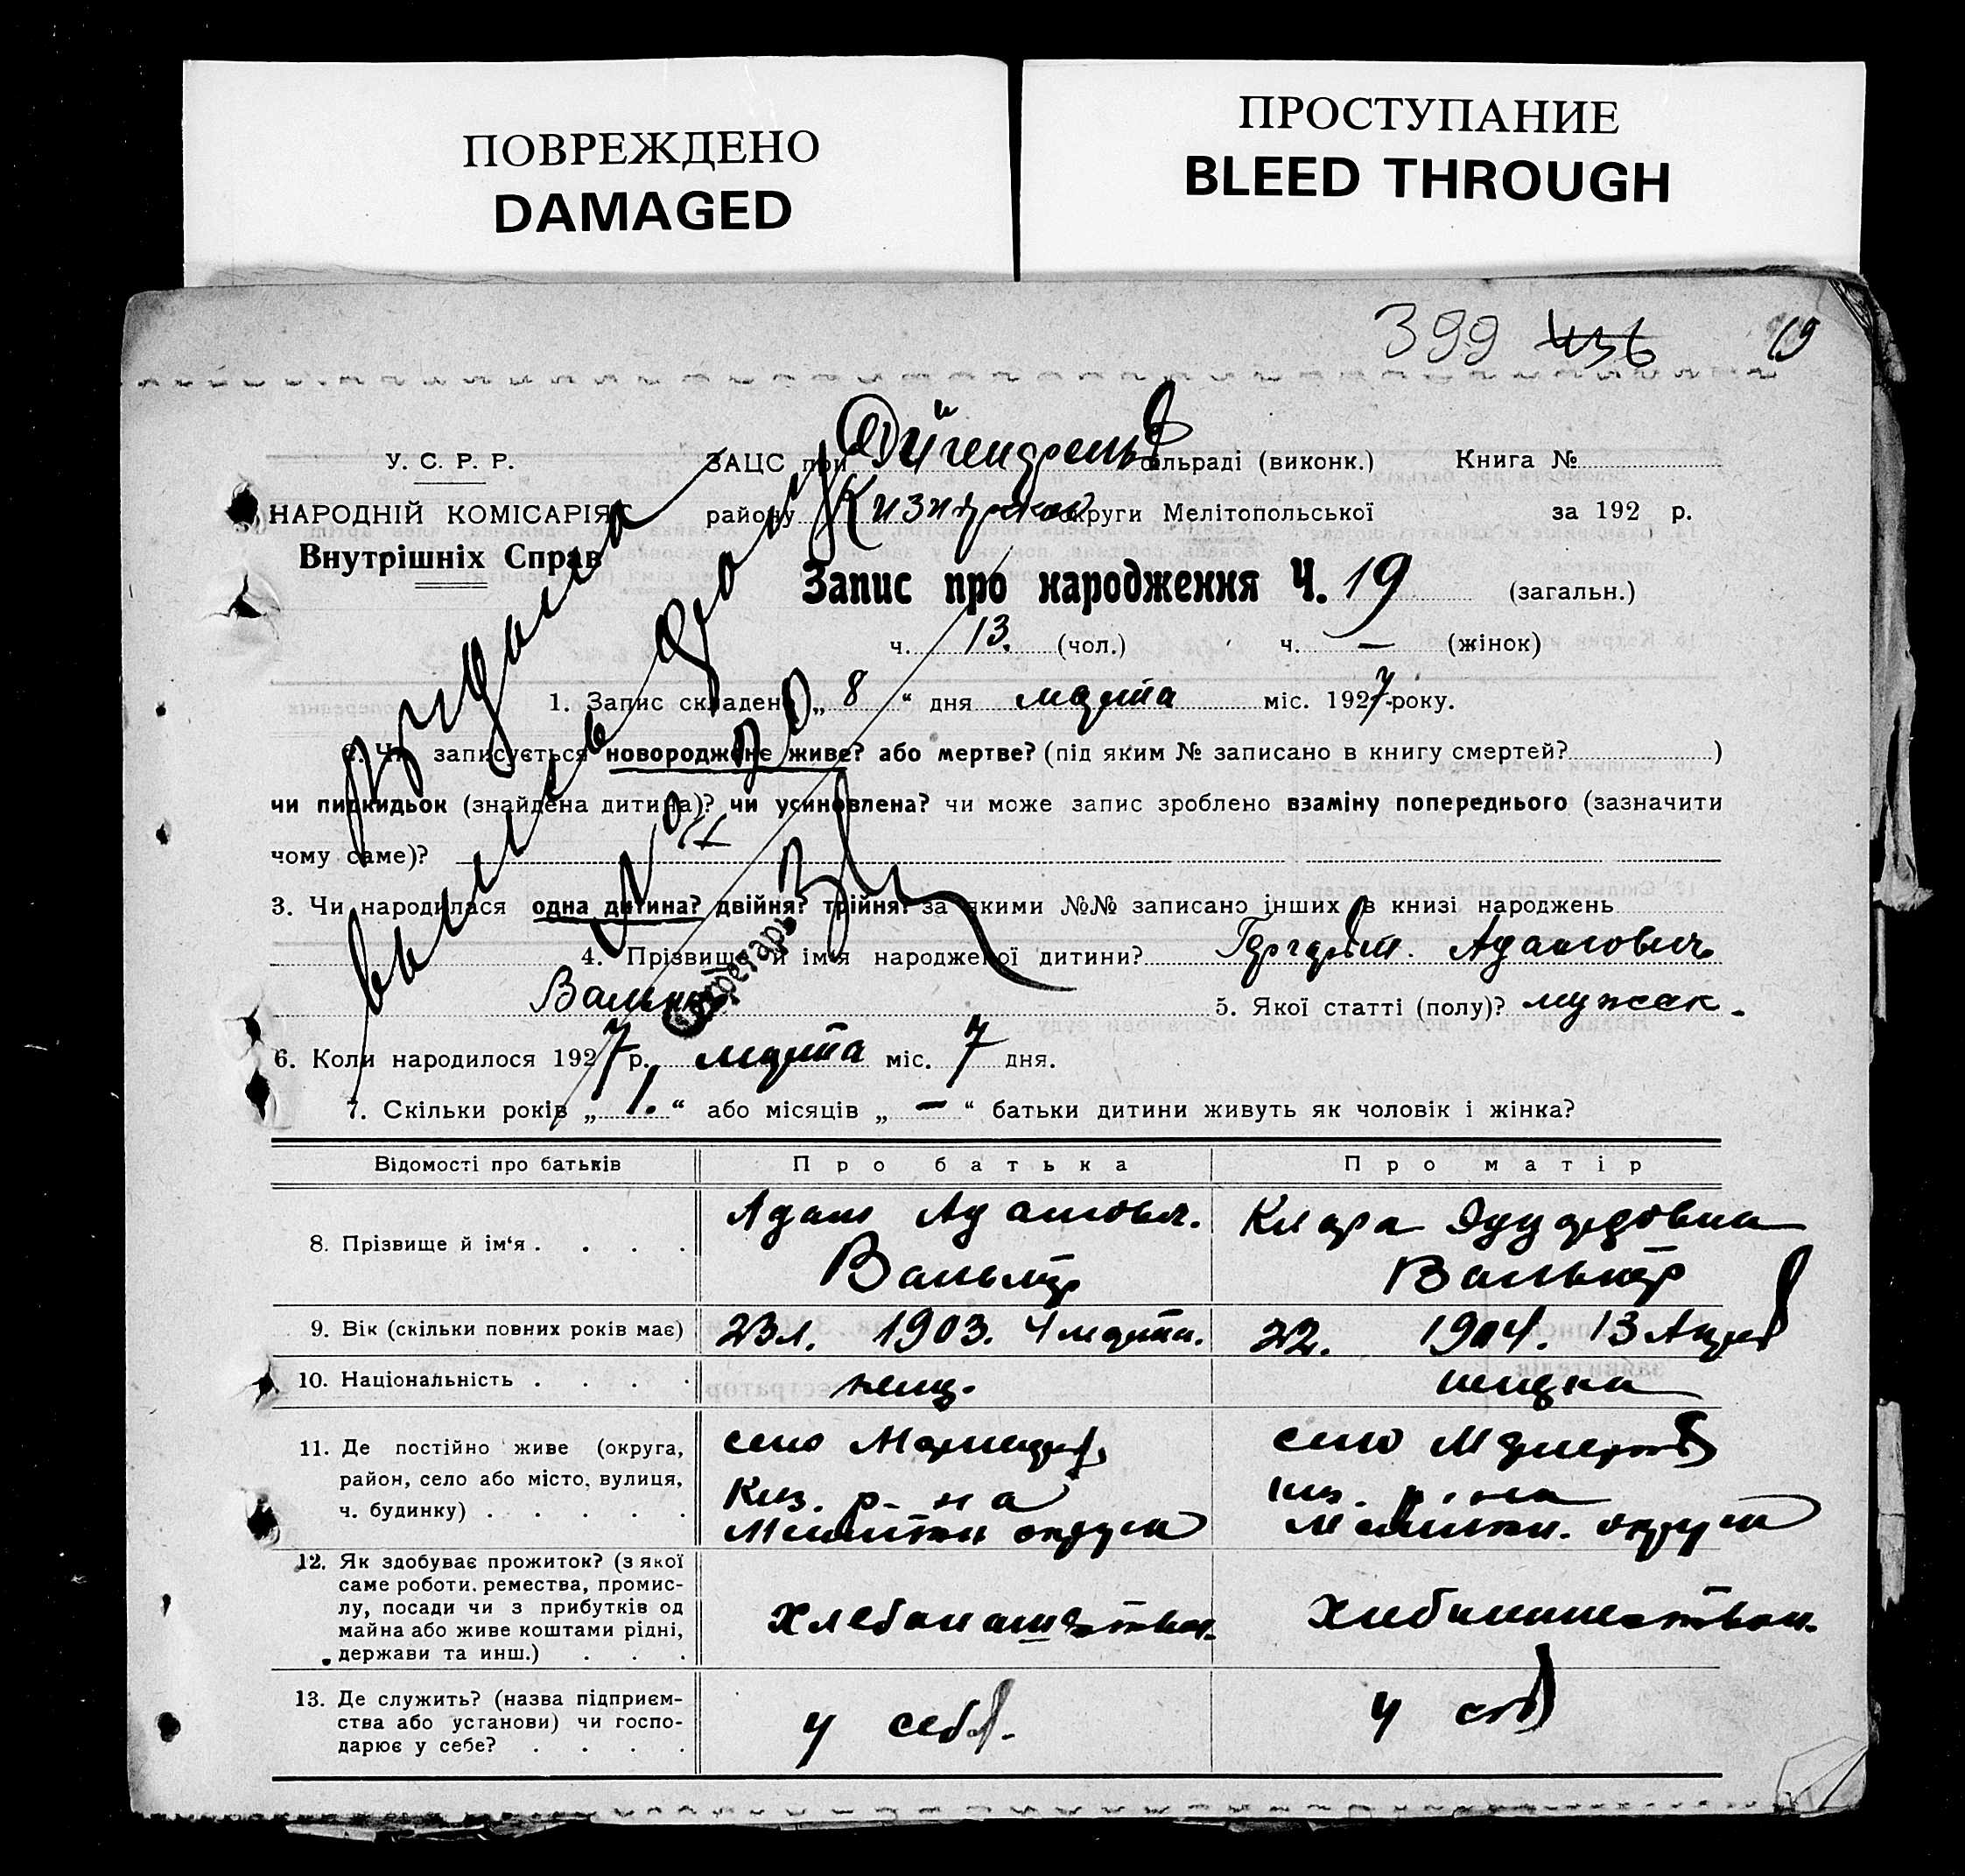 ПОВРЕЖДЕНО
DAMAGED
ПРОСТУПАНИЕ
BLEED THROUGH
399 436 19
У. С. Р. Р.
НАРОДНІЙ КОМІСАРІЯТ
Внутрішніх Справ
ЗАЦС при сільраді (виконк.) Книга №
району округи Мелітопольської за 192 р.
Запис про народження Ч. 19 (загальн.)
ч. 13. (чол.) ч. — (жінок)
1. Запис складено „ 8 “ дня марта міс. 1927 року.
2. Чи записується новороджене живе? або мертве? (під яким № записано в книгу смертей? )
чи підкидьок (знайдена дитина)? чи усиновлена? чи може запис зроблено взаміну попереднього (зазначити
чому саме)?
3. Чи народилася одна дитина? двійня? трійня? за якими №№ записано інших в книзі народжень
4. Прізвище й ім'я народженої дитини? Адамович
5. Якої статті (полу)? мужск.
6. Коли народилося 1927 р. марта міс. 7 дня.
7. Скільки років „ 1. “ або місяців „ — “ батьки дитини живуть як чоловік і жінка?
Відомості про батьків Про батька Про матір
8. Прізвище й ім'я . . . . Адам Адамович. Клара Эдуардовна
Вальтер Вальтер
9. Вік (скільки повних років має) 23 л. 1903. 4 марта. 22. 1904. 13
10. Національність . . . . немц. немка
11. Де постійно живе (округа, село село
район, село або місто, вулиця, Киз. р-на
ч. будинку) . . . . . округи округи
12. Як здобуває прожиток? (з якої
саме роботи. ремества, промис-
лу, посади чи з прибутків од Хлебопашество. Хлебопашество.
майна або живе коштами рідні,
держави та инш.) . . .
13. Де служить? (назва підприєм-
ства або установи) чи госпо- у себя. у себя
дарює у себе? . . . .
Секретарь